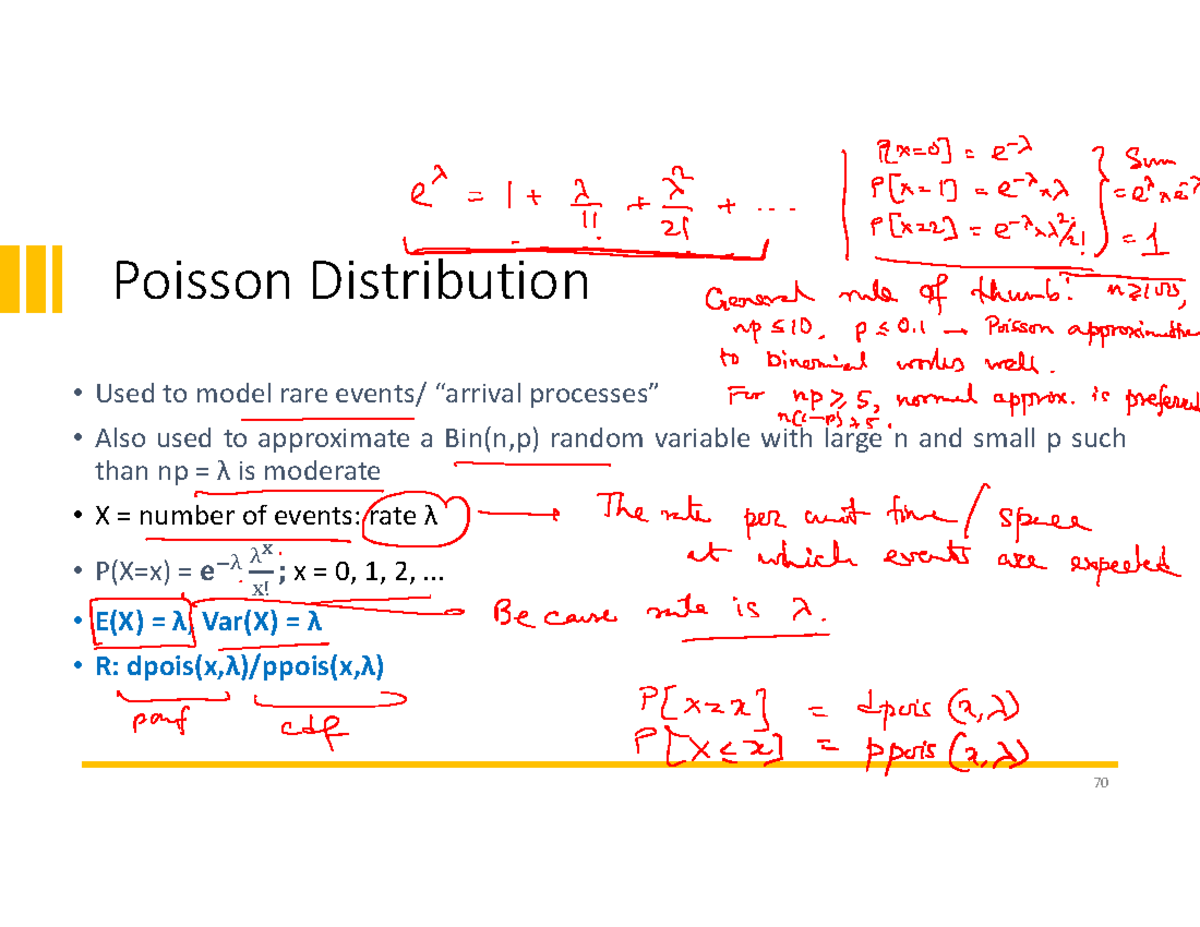 e^λ = 1 + λ/1! + λ²/2! + ...
P[X=0] = e^-λ
P[X=1] = e^-λ x λ
P[X=2] = e^-λ x λ²/2!
Sum
= e^λ x e^-λ
= 1
Poisson Distribution
General rule of thumb: n ≥ 100,
np ≤ 10, p ≤ 0.1 → Poisson approximation
to binomial works well.
For np ≥ 5, normal approx. is preferred
n(1-p) ≥ 5.
• Used to model rare events/ “arrival processes”
• Also used to approximate a Bin(n,p) random variable with large n and small p such
than np = λ is moderate
• X = number of events: rate λ
The rate per unit time / space
at which events are expected
• P(X=x) = e^−λ λ^x/x! ; x = 0, 1, 2, ...
• E(X) = λ, Var(X) = λ
Because rate is λ.
• R: dpois(x,λ)/ppois(x,λ)
pmf
cdf
P[X=x] = dpois (x,λ)
P[X≤x] = ppois (x,λ)
70